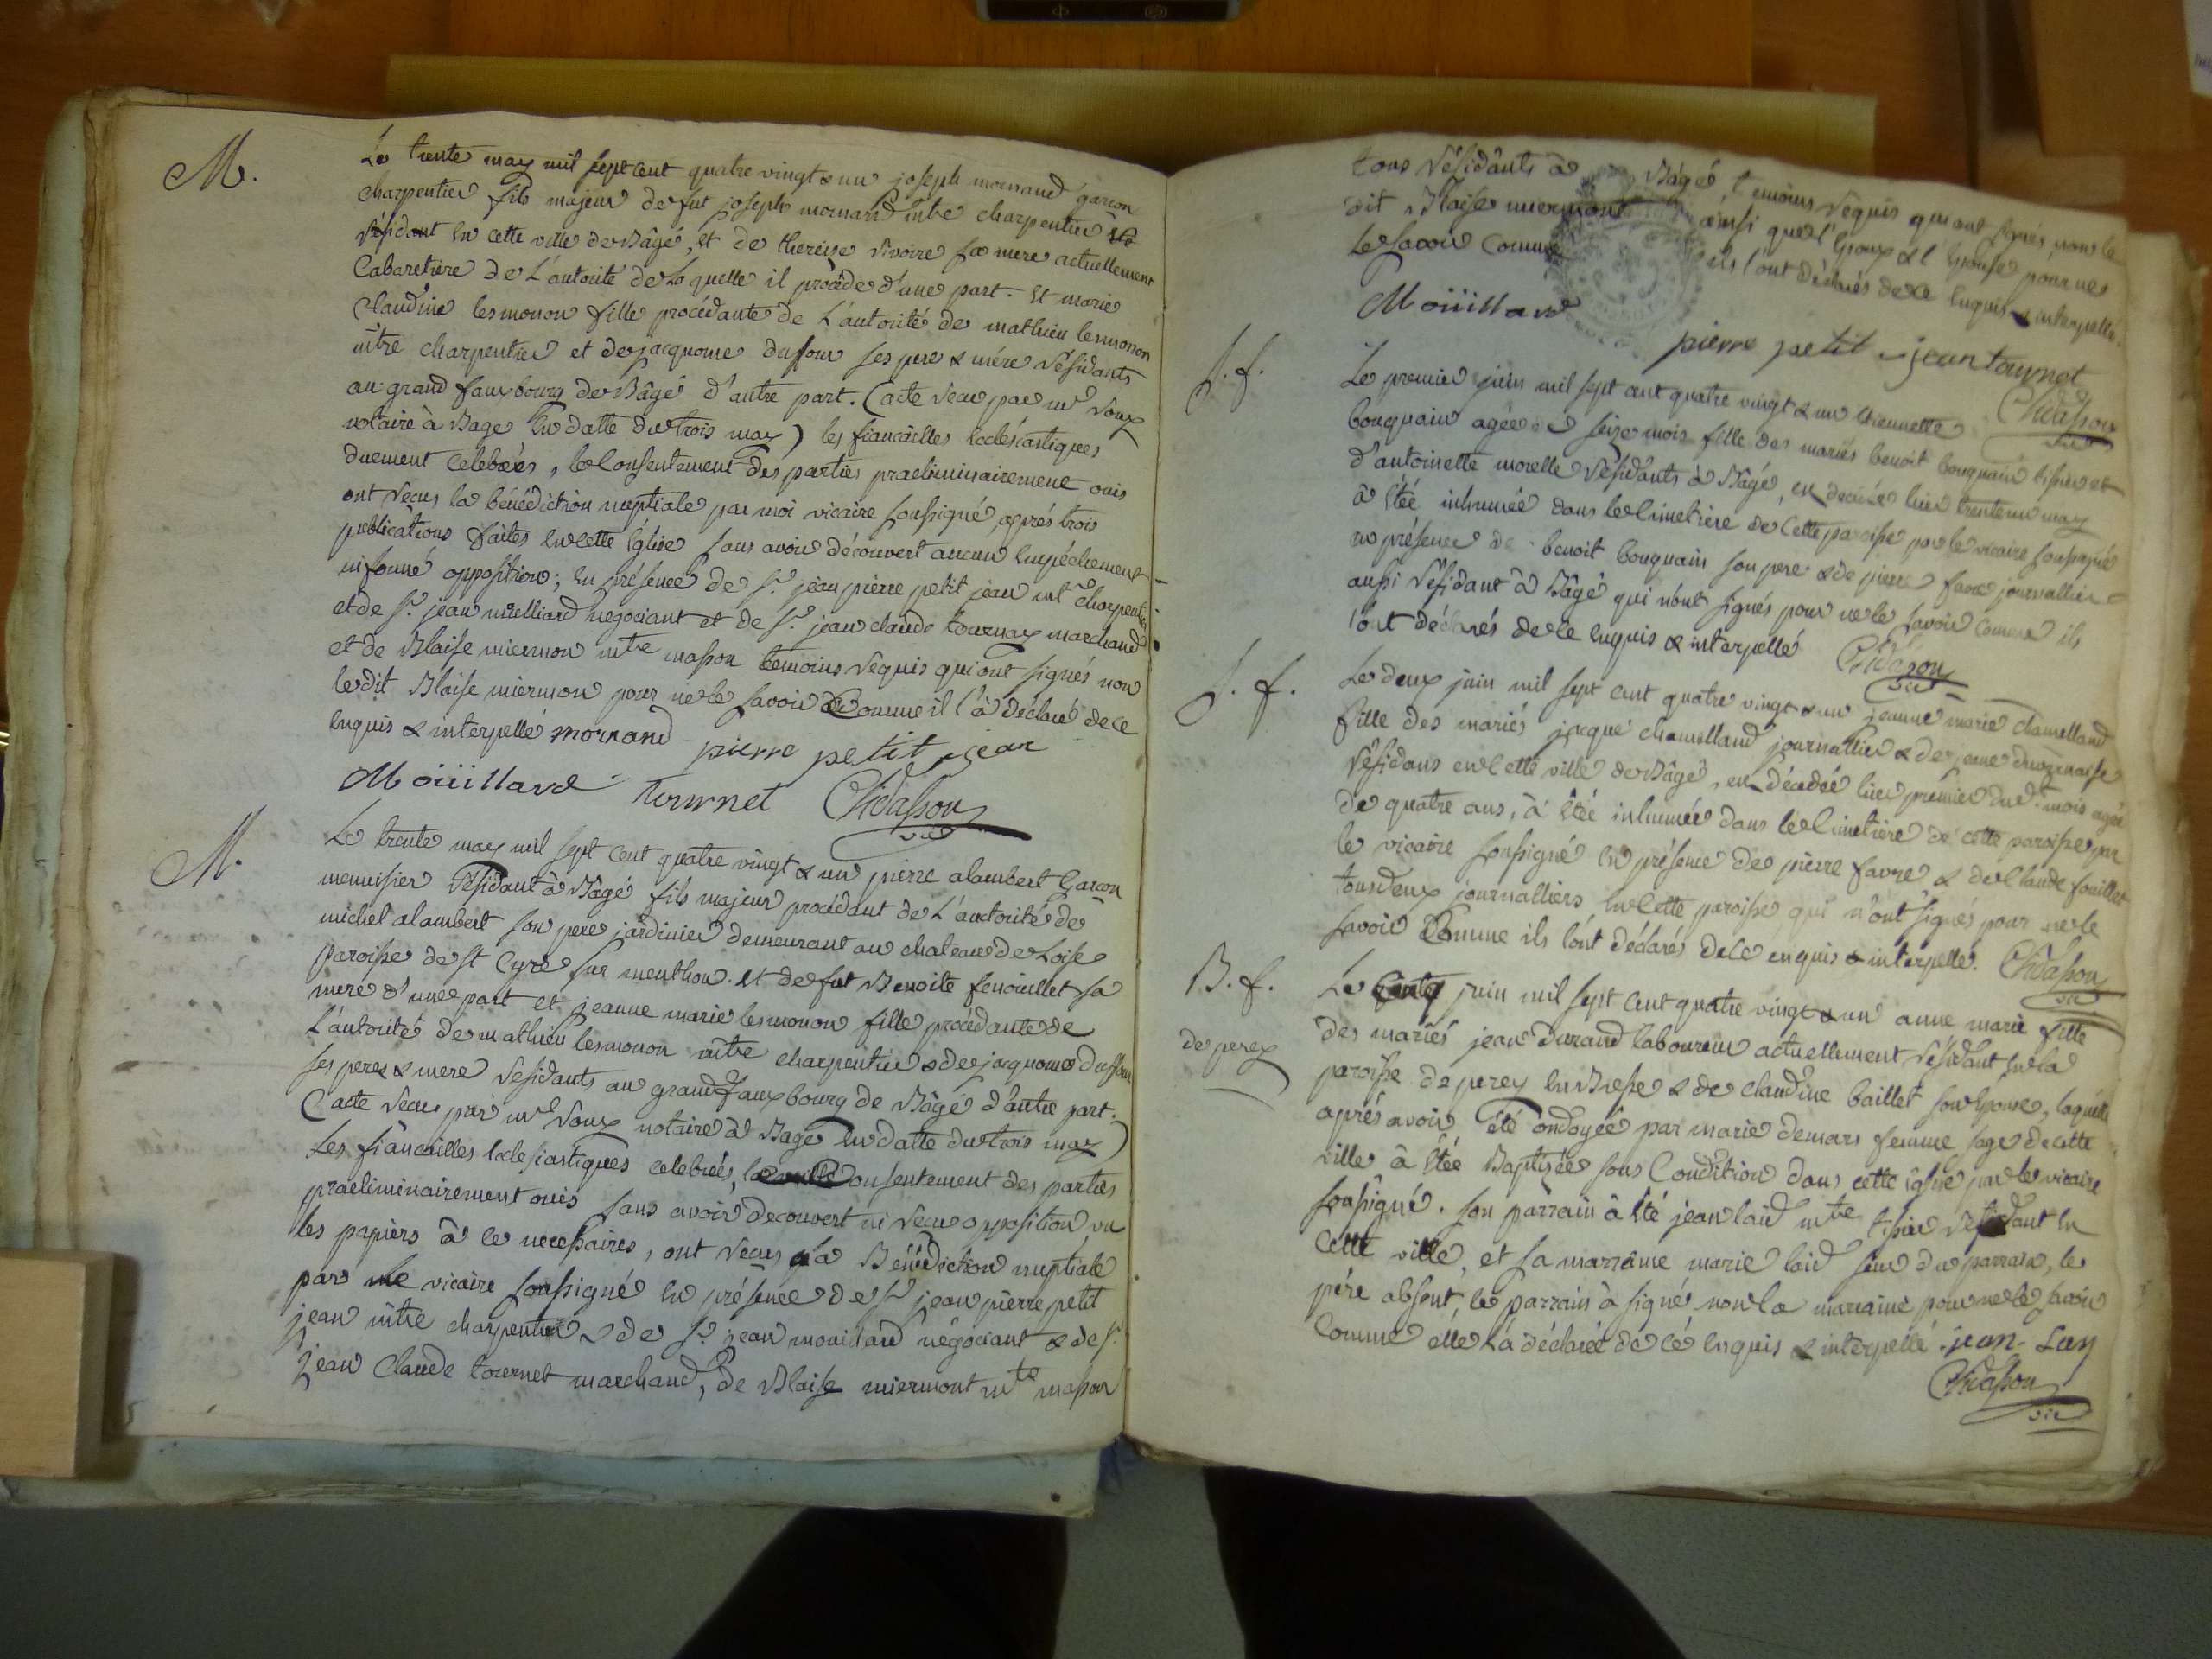 M.
Le trente may mil sept cent quatre vingt & un joseph mornand garcon
charpentier fils majeur de fut joseph mornand mtre charpentier
résidant en cette ville de Bâgé, et de therese sivoire sa mere actuellement
Cabaretiere de L'autorité de Laquelle il procéde d'une part. et marie
Claudine lesmonon fille procédante de L'autorité de mathieu lesmonon
mtre charpentier et de jacquome duffour ses pere & mére résidants
au grand fauxbourg de Bâgé d'autre part. (acte recu par me roux
notaire à Bage en datte du trois may) les fiancailles ecclésiastiques
duement celebrées, le Consentement des parties praeliminairement ouis
ont recus la bénédiction nuptiale par moi vicaire soussigné, aprés trois
publications faites en cette église sans avoir découvert aucun empéchement
ni formé opposition; en présence de sr. jean pierre petit jean mt charpentier
et de sr. jean mielliard negociant et de sr. jean claude tournay marchand
et de Blaise miermon mtre masson temoins réquis qui ont signés non
ledit Blaise miermon pour ne le savoir Comme il l'à déclaré de ce
enquis & interpellé mornand pierre petit jean
Moüillard tournet Chidasson
vic
M.
Le trente may mil sept cent quatre vingt & un pierre alambert Garcon
menuisier résidant à Bâgé fils majeur procédant de L'autorité de
michel alambert son pere jardinier demeurant au chateau de Loise
paroisse de st Cyre sur menthon. et de fut Benoite fenouillet sa
mere d'une part et jeanne marie lesmonon fille procédante de
L'autorité de mathieu lesmonon mtre charpentier & de jacquome duffour
ses peres & mere residants au grand fauxbourg de Bâgé d'autre part.
(acte recu par me roux notaire à Bage en datte du trois may)
Les fiancailles eclesiastiques celebreés, le Consentement des parties
praeliminairement ouis sans avoir decouvert ni recu opposition vu
les papiers à ce necessaires, ont recus la Bénédiction nuptiale
par le vicaire soussigné en présence de sr jean pierre petit
jean mtre charpentier & de sr. jean mouillard négociant & de sr.
jean Claude tournet marchand, de Blaise miermont mte masson
tous résidants à Bâgé, temoins réquis qui ont signés non le
dit Blaise miermont ainsi que l'Epoux & l'Epouse pour ne
le savoir Comme ils l'ont déclarés de ce enquis & interpellé.
Moüillard
pierre petit jean tournet
Chidasson
vic
J. f.
Le premier juin mil sept cent quatre vingt & un etiennette
bouquain agée de seize mois fille des mariés benoit bouquain tissier et
d'antoinette morelle résidants à Bâgé, en decédée hier trente un may
à étéé inhumée dans le Cimetiere de Cette paroisse par le vicaire soussigné
en présence de benoit bouquain son pere & de pierre favre journallier
aussi résidant à Bâgé qui n'ont signés pour ne le savoir comme ils
l'ont déclarés de ce enquis & interpellé Chidasson
vic
J. f.
Le deux juin mil sept cent quatre vingt & un jeanne marie chamelland
fille des mariés jacque chamelland journallier & de jeanne duvernaise
résidans en Cette ville de Bâgé, en décédée hier premier dud. mois agée
de quatre ans, à étéé inhumée dans le Cimetière de cette paroisse par
le vicaire soussigné en présence de pierre favre & de Claude fouillet
tous deux journalliers en Cette paroisse qui n'ont signés pour ne le
savoir Comme ils l'ont déclarés de ce enquis & interpellé. Chidasson
vic
B. f.
de perex
Le juin mil sept cent quatre vingt & un anne marie fille
des mariés jean durand laboureur actuellement résidant en la
paroisse de perey en Bresse & de claudine baillet son épouse, laquelle
aprés avoir été ondoyée par marie demars femme sage de cette
ville à étéé Baptisée sous Condition dans cette église par le vicaire
soussigné. son parrain à été jean laid mte tissier résidant en
Cette ville, et sa marraine marie laid seur du parrain, le
pére absent, le parrain à signé non la marraine pour ne le savoir
Comme elle l'à déclarée de cé enquis & interpellé. jean Lay
Chidasson
vic